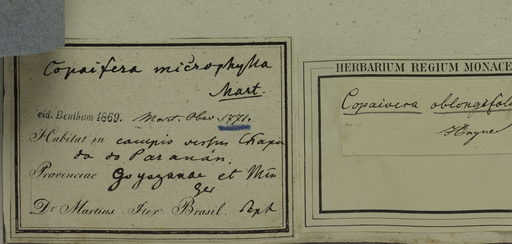 Copaifera microphylla
Mart.
vid. Bentham 1869. Mart. Obs. 1771.
Habitat in campis versus Chapa
da do Paranán.
Provinciae Goyazanae et Min
Dr Martius Iter Brasil. Sept
HERBARIUM REGIUM MONACE
Copaivera oblongifol
Hayne